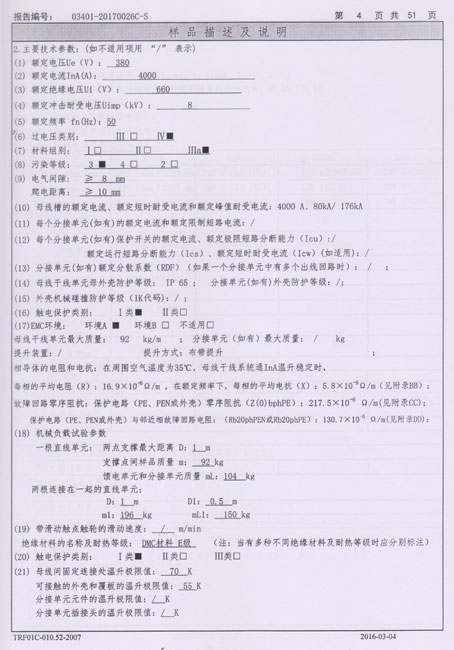 报告编号： 03401-20170026C-S 第 4 页 共 51 页
样 品 描 述 及 说 明
2.主要技术参数：(如不适用项用 “/” 表示)
(1) 额定电压Ue（V）： 380
(2) 额定电流InA(A)： 4000
(3) 额定绝缘电压Ui（V）： 660
(4) 额定冲击耐受电压Uimp（kV）： 8
(5) 额定频率 fn(Hz)：50
(6) 过电压类别： Ⅲ □ Ⅳ■
(7) 材料组别： Ⅰ□ Ⅱ□ Ⅲa■
(8) 污染等级： 3 ■ 4 □ 2 □
(9) 电气间隙： ≥ 8 mm
爬电距离： ≥ 10 mm
(10) 母线槽的额定电流、额定短时耐受电流和额定峰值耐受电流：4000 A、80kA/ 176kA
(11) 每个分接单元(如有)的额定电流和额定限制短路电流：/
(12) 每个分接单元(如有)保护开关的额定电流、额定极限短路分断能力（Icu）:/
额定运行短路分断能力（Ics）、额定短时耐受电流（Icw）(如适用)：/
(13) 分接单元(如有)额定分散系数（RDF）（如果一个分接单元中有多个出线回路时）： / ；
(14) 母线干线单元母外壳防护等级： IP 65 ； 分接单元(如有)外壳防护等级：/；
(15) 外壳机械碰撞防护等级（IK代码）：/ ；
(16) 触电保护类别： Ⅰ类■ Ⅱ类□
(17)EMC环境： 环境A ■ 环境B □ 不适用□
母线干线单元最大质量： 92 kg/m ； 分接单元（如有）最大质量： / kg
提升装置：/ 提升方式：布带提升 ；
相导体的电阻和电抗：在周围空气温度为35℃，母线干线系统通InA温升稳定时，
每相的平均电阻（R）：16.9×10⁻⁶ Ω/m ，在额定频率下，每相的平均电抗（X）：5.8×10⁻⁶ Ω/m（见附录BB）；
故障回路零序阻抗：保护电路（PE、PEN或外壳）零序阻抗（Z(0)bphPE）：217.5×10⁻⁶ Ω/m(见附录CC)；
保护电路（PE、PEN或外壳）与邻近相故障回路电阻：（Rb20phPEN或Rb20phPE）：130.7×10⁻⁶ Ω/m(见附录DD)；
(18) 机械负载试验参数
一根直线单元： 两点支撑最大距离 D：1 m
支撑点间样品质量 m： 92 kg
馈电单元和分接单元质量 mL：104 kg
两根连接在一起的直线单元：
D：1 m D1： 0.5 m
m1：196 kg mL1： 150 kg
(19) 带滑动触点触轮的滑动速度： / m/min
绝缘材料的名称及耐热等级： DMC材料 E级 （注：当有多种不同绝缘材料及耐热等级时应分别标注）
(20) 触电保护类别： Ⅰ类■ Ⅱ类□ Ⅲ类□
(21) 母线间固定连接处温升极限值： 70 K
可接触的外壳和覆板的温升极限值： 55 K
分接单元元件的温升极限值：/ K
分接单元插接头的温升极限值：/ K
TRF01C-010.52-2007 2016-03-04